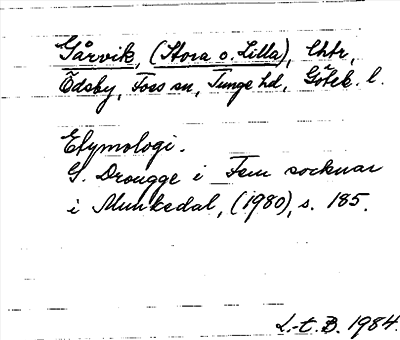 Gårvik, (Stora o. Lilla), lhtr,
Ödsby, Foss sn, Tunge hd, Göteb. l.
Etymologi.
G. Drougge i Fem socknar
i Munkedal, (1980), s. 185.
L.-t. B. 1984.